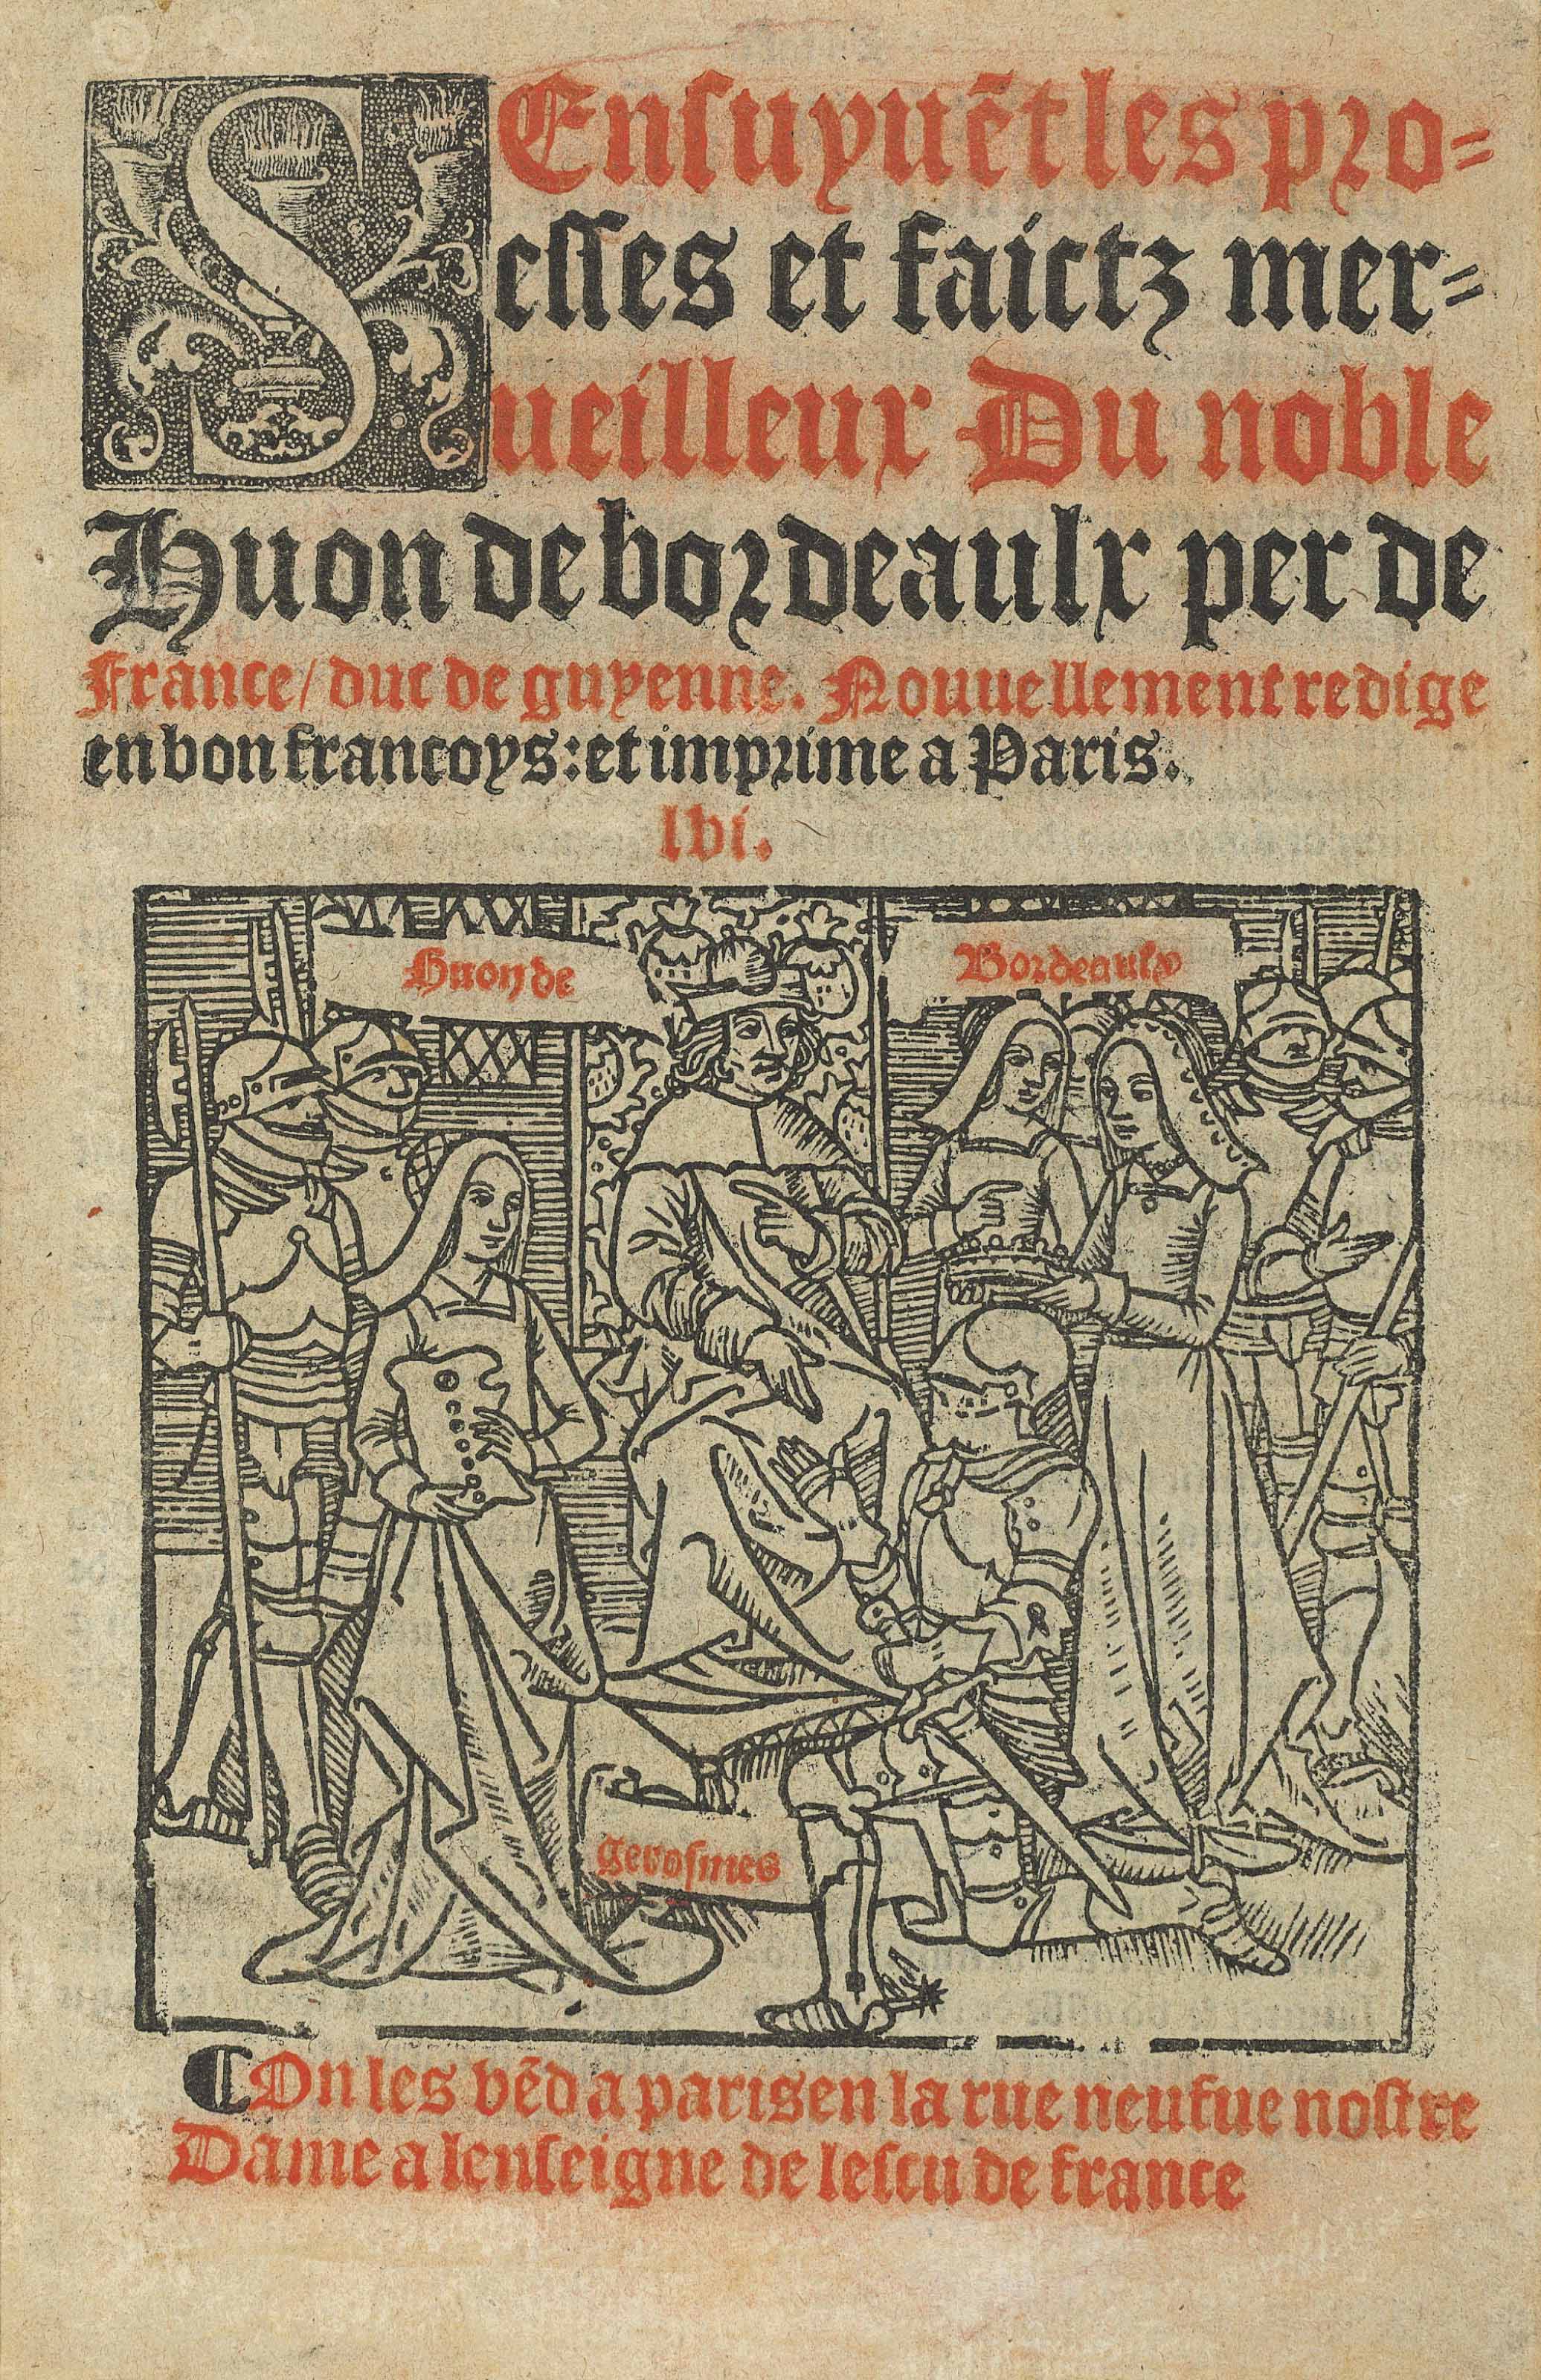 SEnſuyuẽt les pro=
eſſes et faictz mer=
ueilleux Du noble
Huon de bordeaulx per de
France/ duc de guyenne. Nouuellement redige
en bon francoys: et imprime a Paris.
lvi.
Huon de
Bordeaulx
Geroſmes
¶ On les vẽd a paris en la rue neufue noſtre
Dame a lenſeigne de leſcu de france